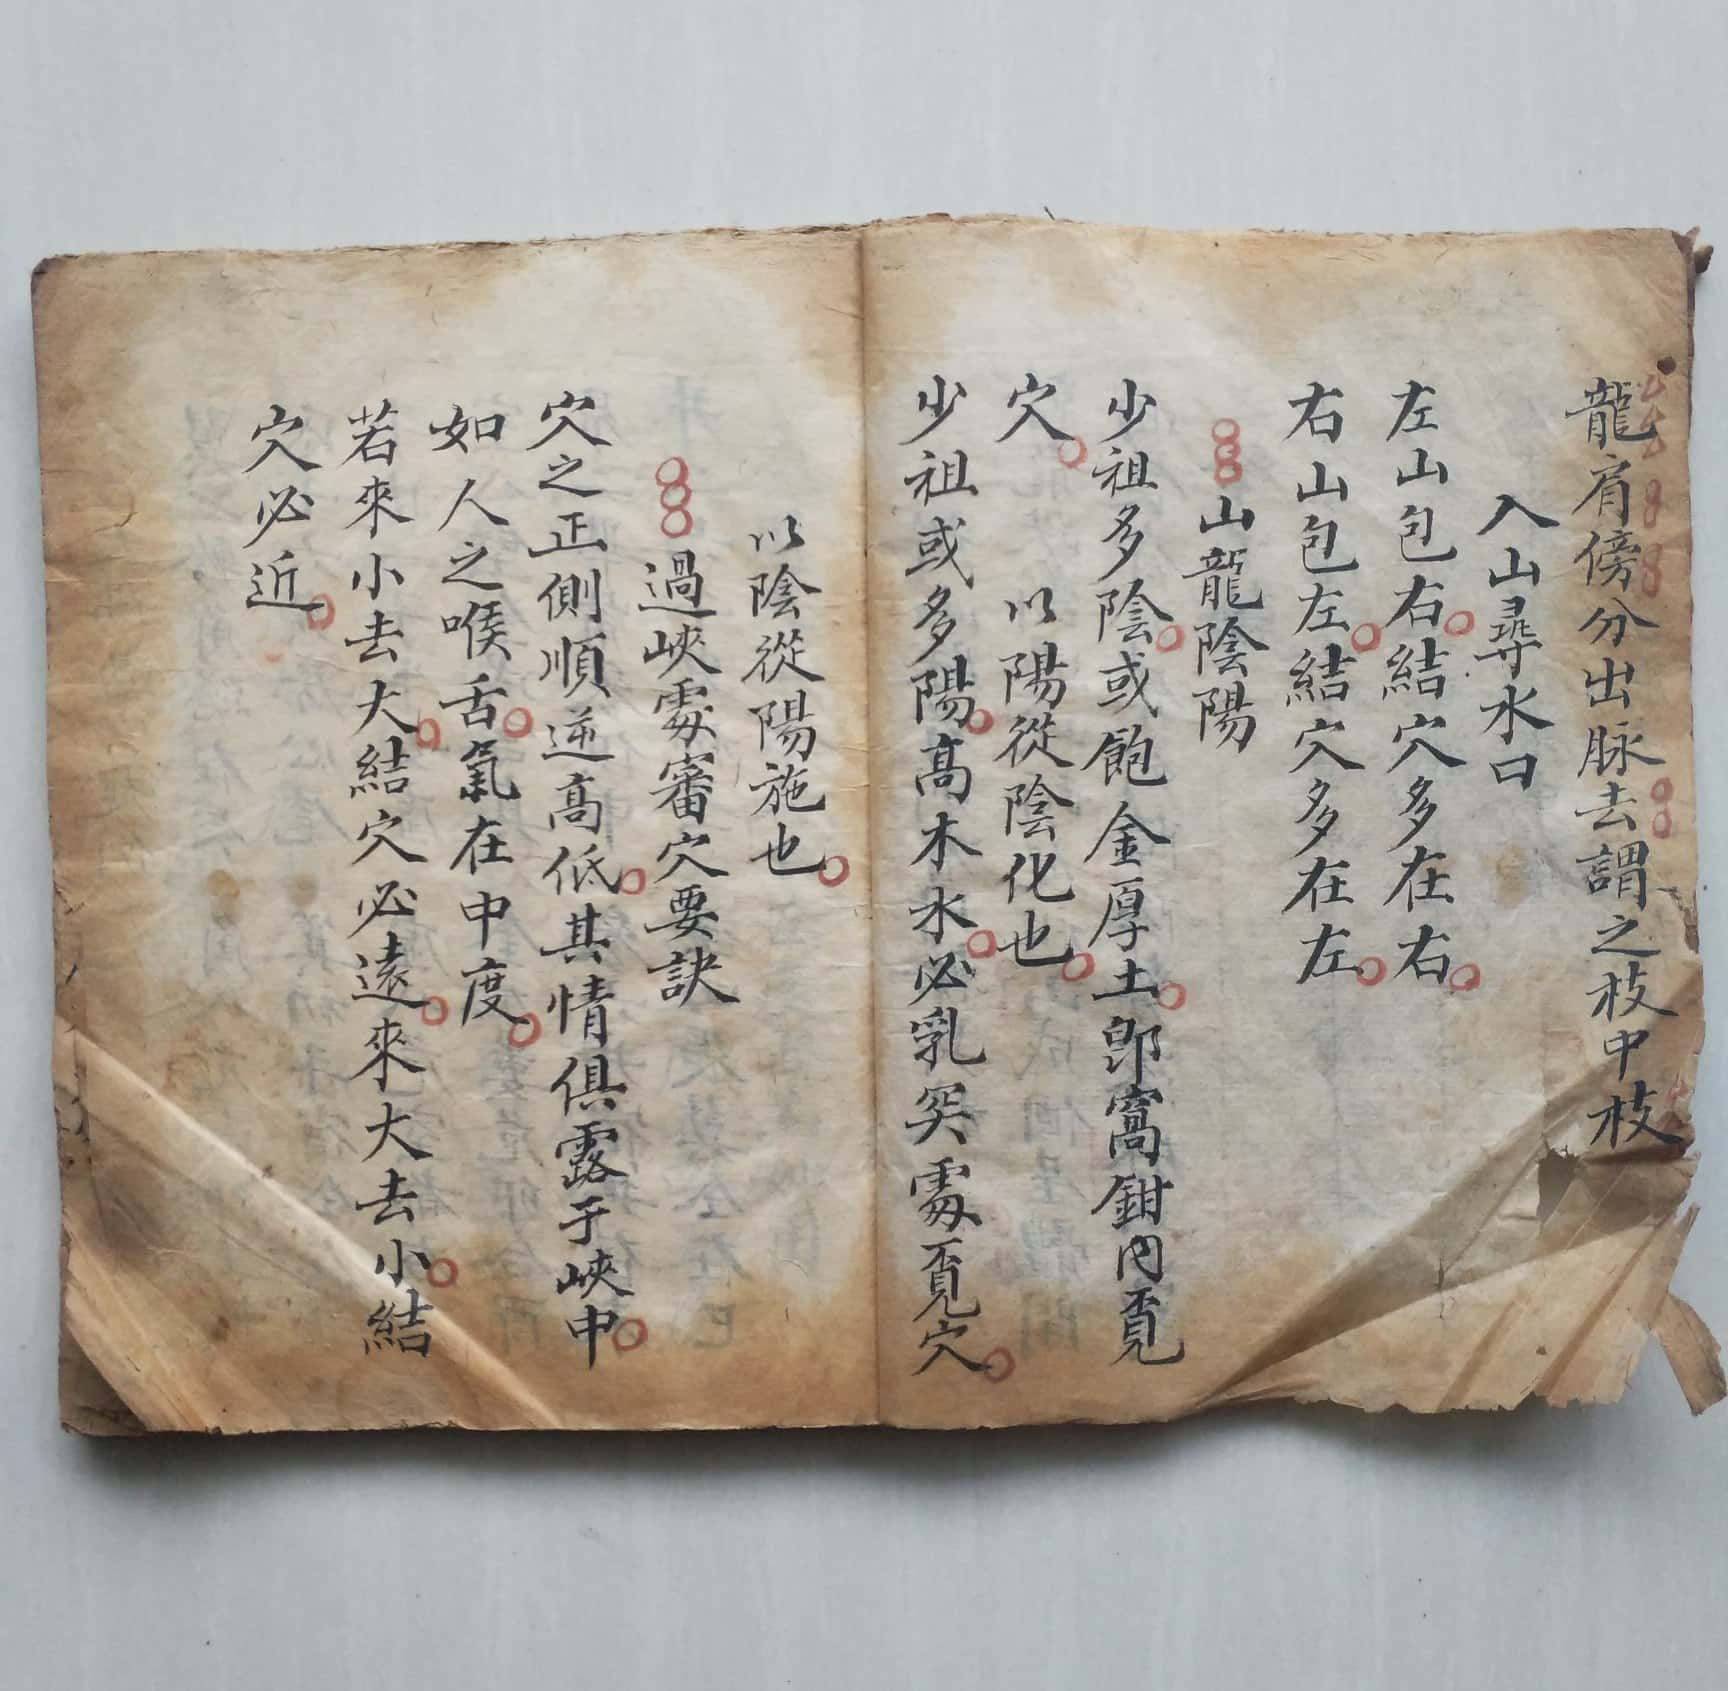 龍肩傍分出脉去謂之枝中枝
入山尋水口
左山包右結穴多在右
右山包左結穴多在左
山龍陰陽
少祖多陰或飽金厚土即窩鉗內覓
穴 以陽從陰化也
少祖或多陽高木水必乳突處覓穴
以陰從陽施也
過峽處審穴要訣
穴之正側順逆高低其情俱露于峽中
如人之喉舌氣在中度
若來小去大結穴必遠來大去小結
穴必近